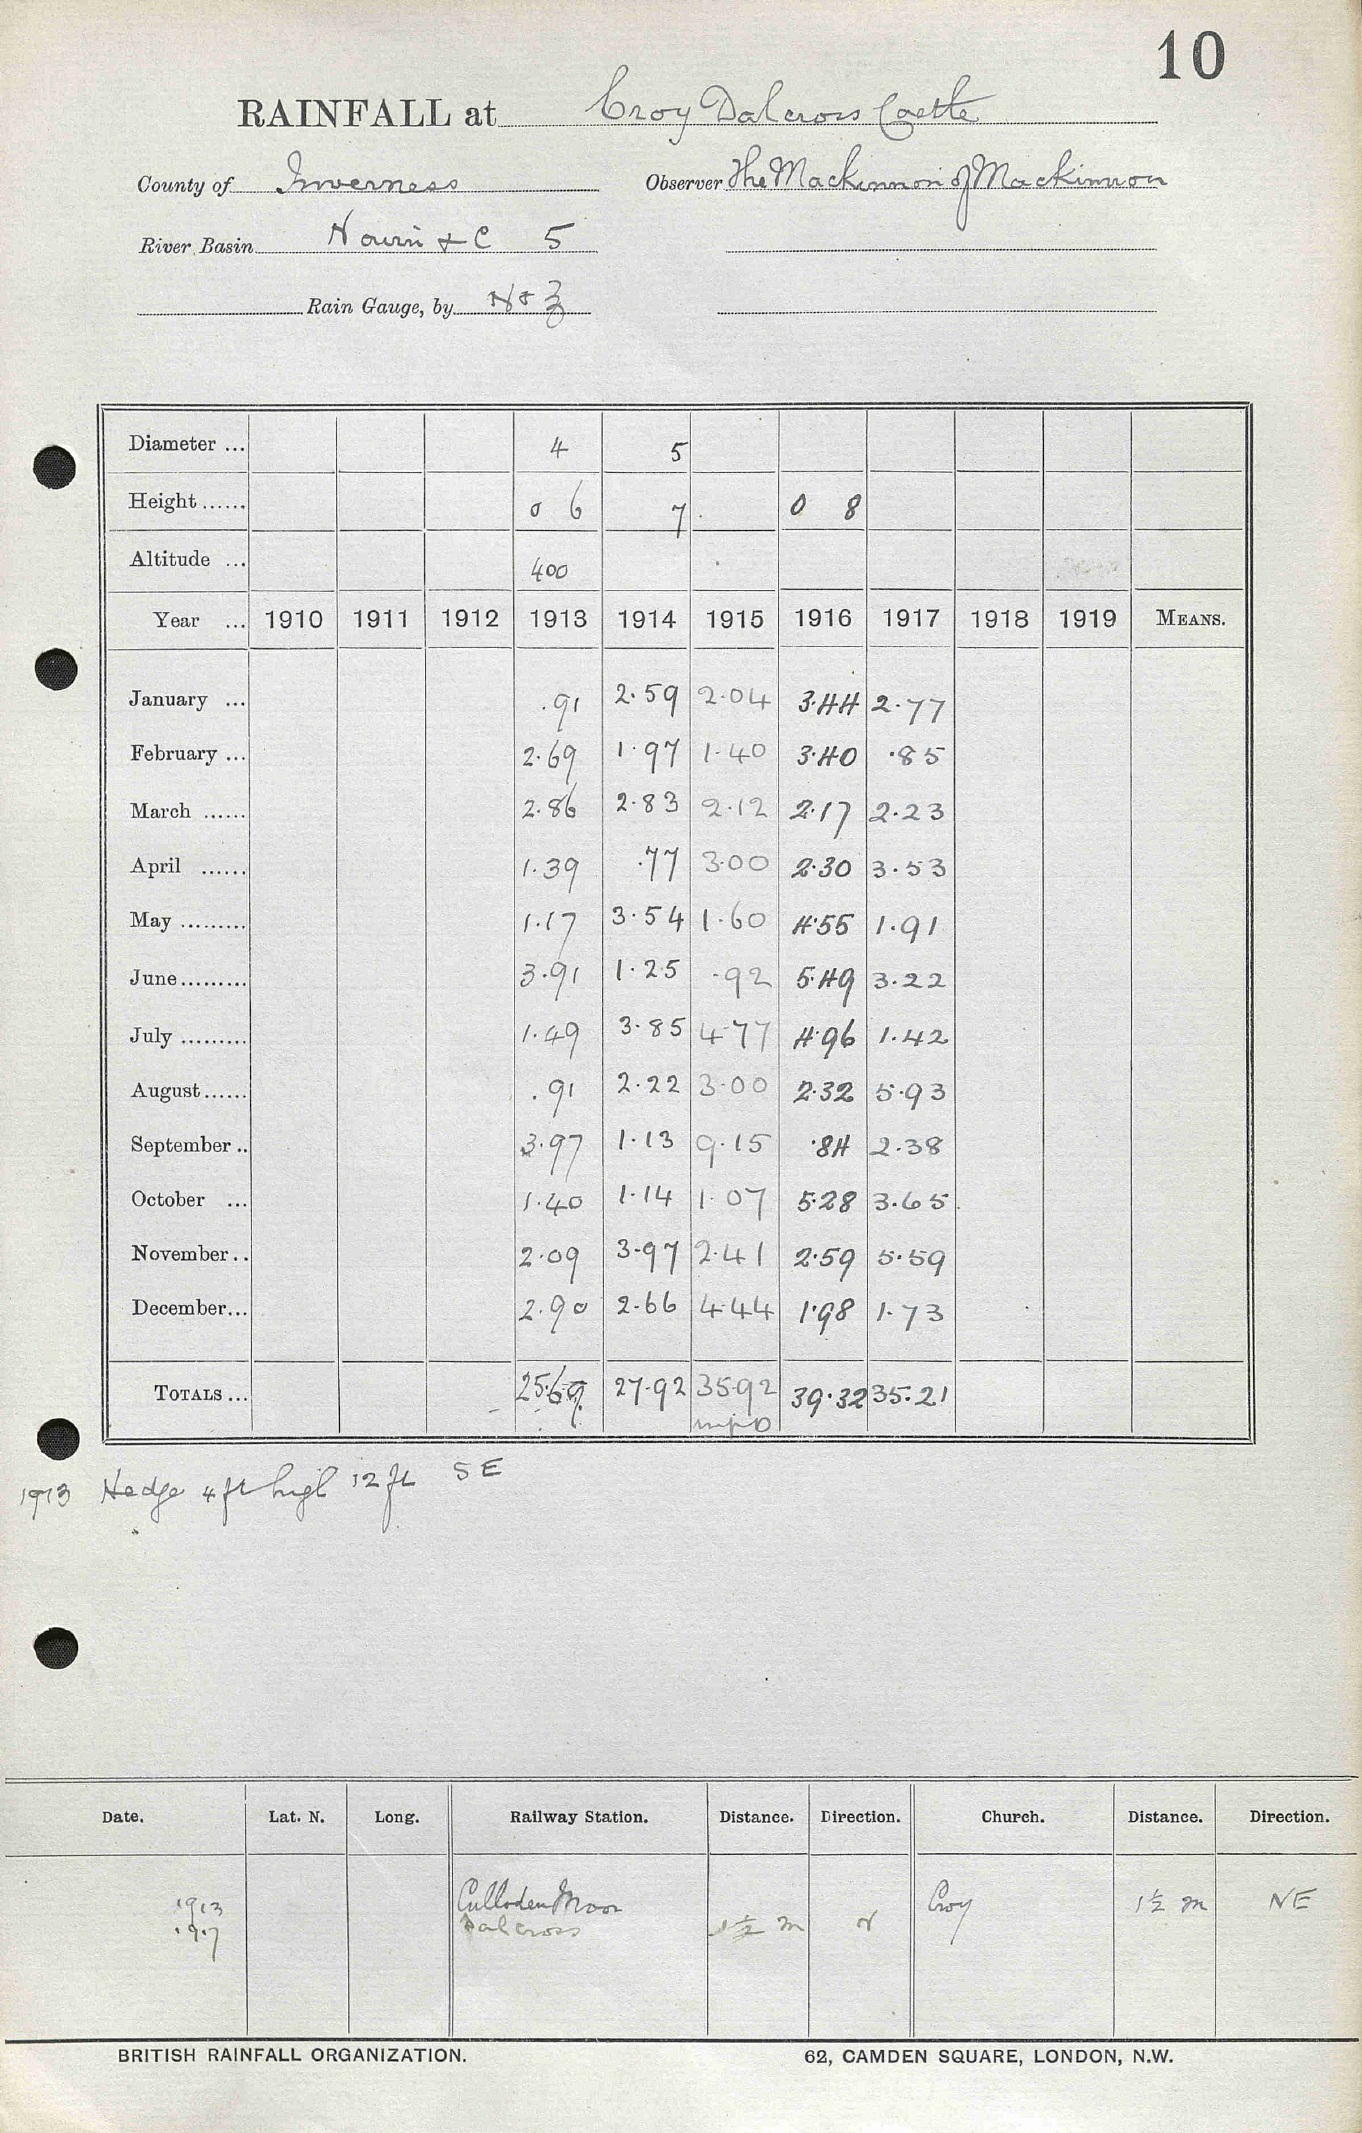 10
RAINFALL at Croy Dalcross Castle
County of Inverness Observer The Mackinnon of Mackinnon
River Basin Nairn & C 5
Rain Gauge, by N & Z
Diameter ... 4 5
Height ...... 0 6 7 0 8
Altitude ... 400
Year ... 1910 1911 1912 1913 1914 1915 1916 1917 1918 1919 MEANS.
January ... .91 2.59 2.04 3.44 2.77
February ... 2.69 1.97 1.40 3.40 .85
March ...... 2.86 2.83 2.12 2.17 2.23
April ...... 1.39 .77 3.00 2.30 3.53
May ......... 1.17 3.54 1.60 4.55 1.91
June ......... 3.91 1.25 .92 5.49 3.22
July ......... 1.49 3.85 4.77 4.96 1.42
August ...... .91 2.22 3.00 2.32 5.93
September .. 3.97 1.13 9.15 .84 2.38
October ... 1.40 1.14 1.07 5.28 3.65
November .. 2.09 3.97 2.41 2.59 5.59
December ... 2.90 2.66 4.44 1.98 1.73
TOTALS ... 25.69 27.92 35.92 39.32 35.21
1913 Hedge 4 ft high 12 ft SE
Date. Lat. N. Long. Railway Station. Distance. Direction. Church. Distance. Direction.
1913 Culloden Moor Croy 1½ m NE
1917 Dalcross 1½ m N
BRITISH RAINFALL ORGANIZATION. 62, CAMDEN SQUARE, LONDON, N.W.